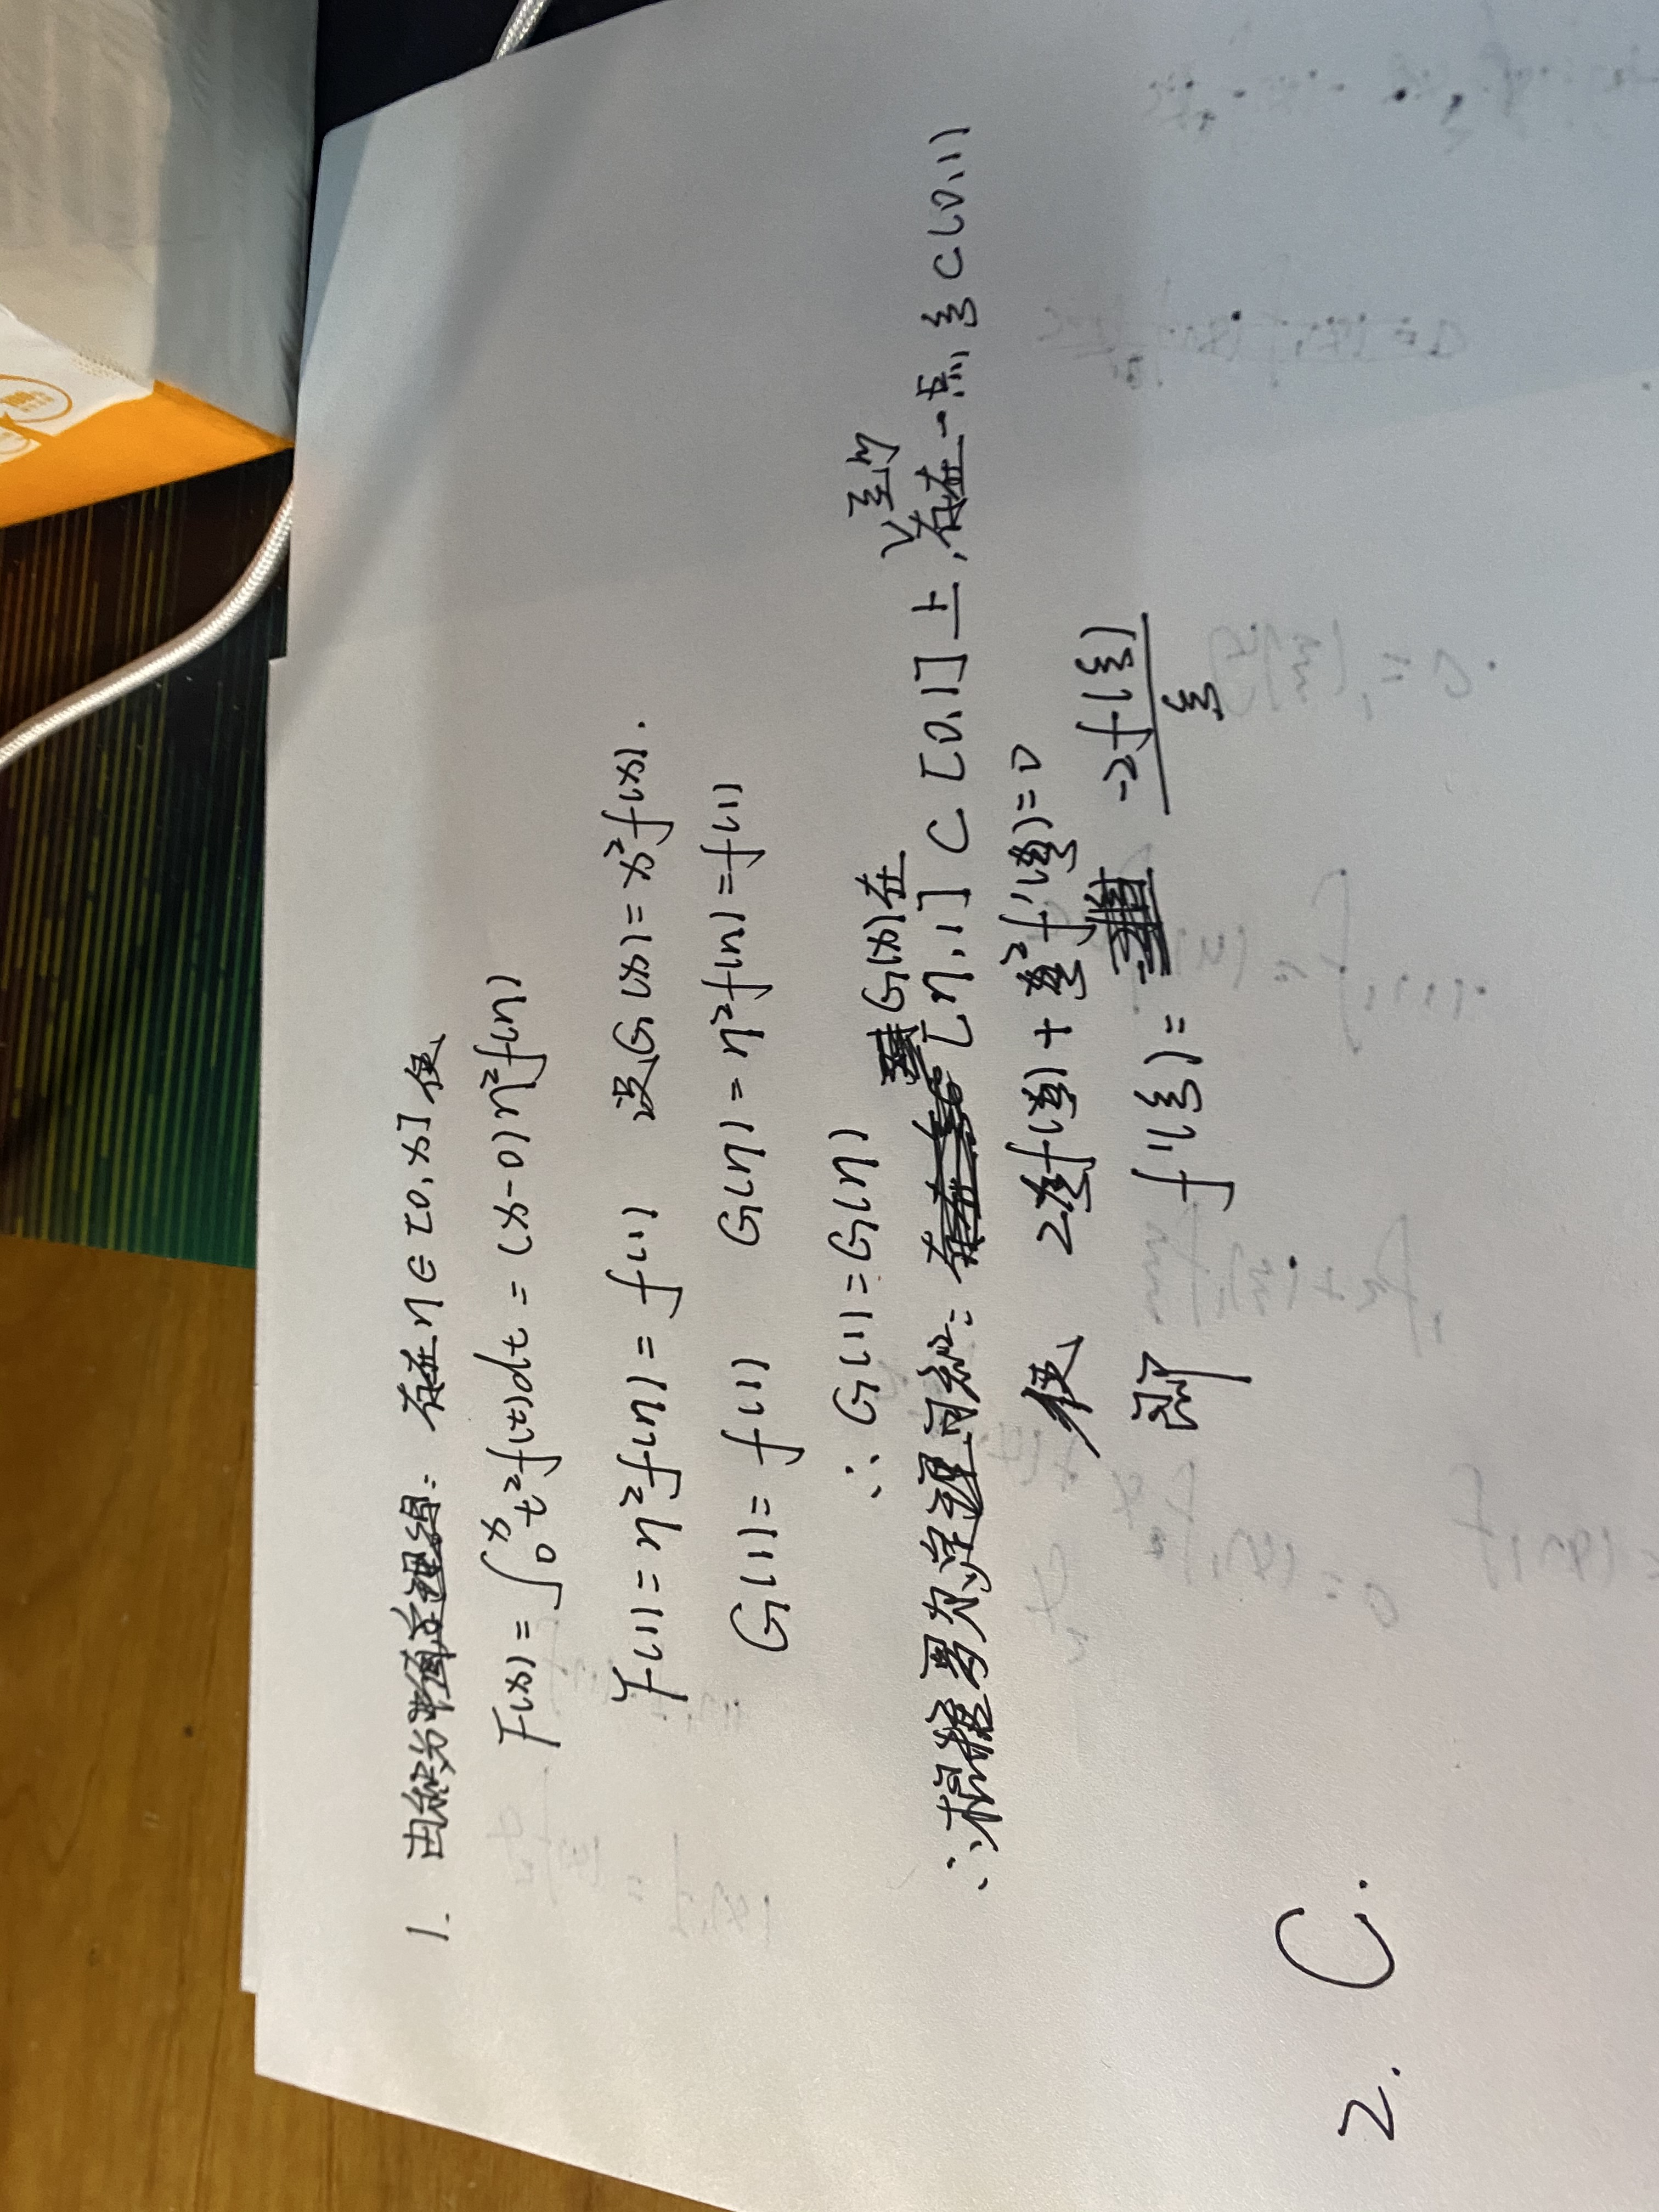 1. 由积分中值定理得: 存在η∈[0,x]使
F(x)=∫₀ˣt²f(t)dt=(x-0)η²f(η)
F(1)=η²f(η)=f(1) 设G(x)=x²f(x).
G(1)=f(1) G(η)=η²f(η)=f(1)
∴G(1)=G(η)
∴根据罗尔定理可知: G(x)在[η,1]⊂[0,1]上,至少存在一点ξ⊂(0,1)
使 2ξf(ξ)+ξ²f'(ξ)=0
即 f'(ξ)=-2f(ξ)/ξ
2. C.